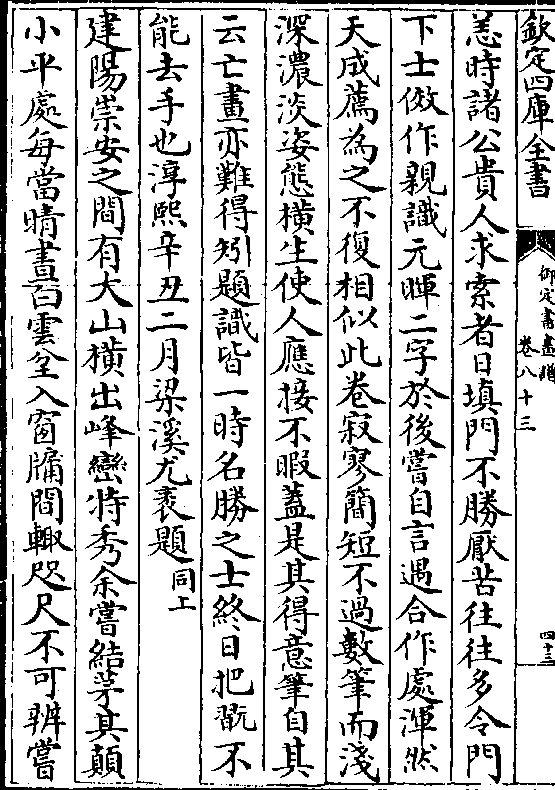 欽定四庫全書
御定書畫譜
卷八十三
四十三
恙時諸公貴人求索者日填門不勝厭苦往往多令門
下士傚作親識元暉二字於後嘗自言遇合作處渾然
天成薦為之不復相似此卷寂寥簡短不過數筆而淺
深濃淡姿態橫生使人應接不暇蓋是其得意筆自其
云亡畫亦難得矧題識皆一時名勝之士終日把翫不
能去手也淳熙辛丑二月梁溪尤袤題同上
建陽崇安之間有大山橫出峰巒特秀余嘗結茅其顛
小平處每當晴晝白雲坌入窗牖間輙咫尺不可辨嘗